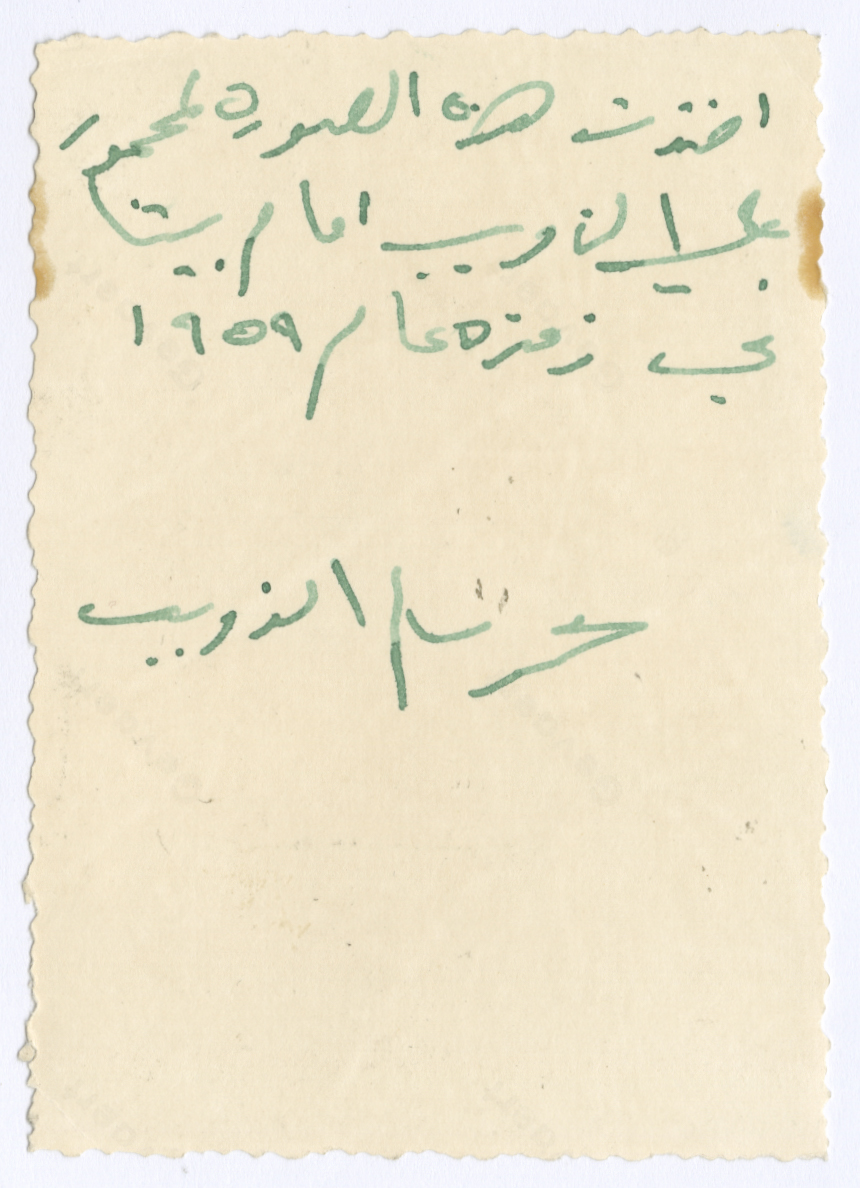 اخذت هذه الصوره لمحمود
علي الذويب امام بيتنا
في زمزه عام ١٩٥٩
الذويب